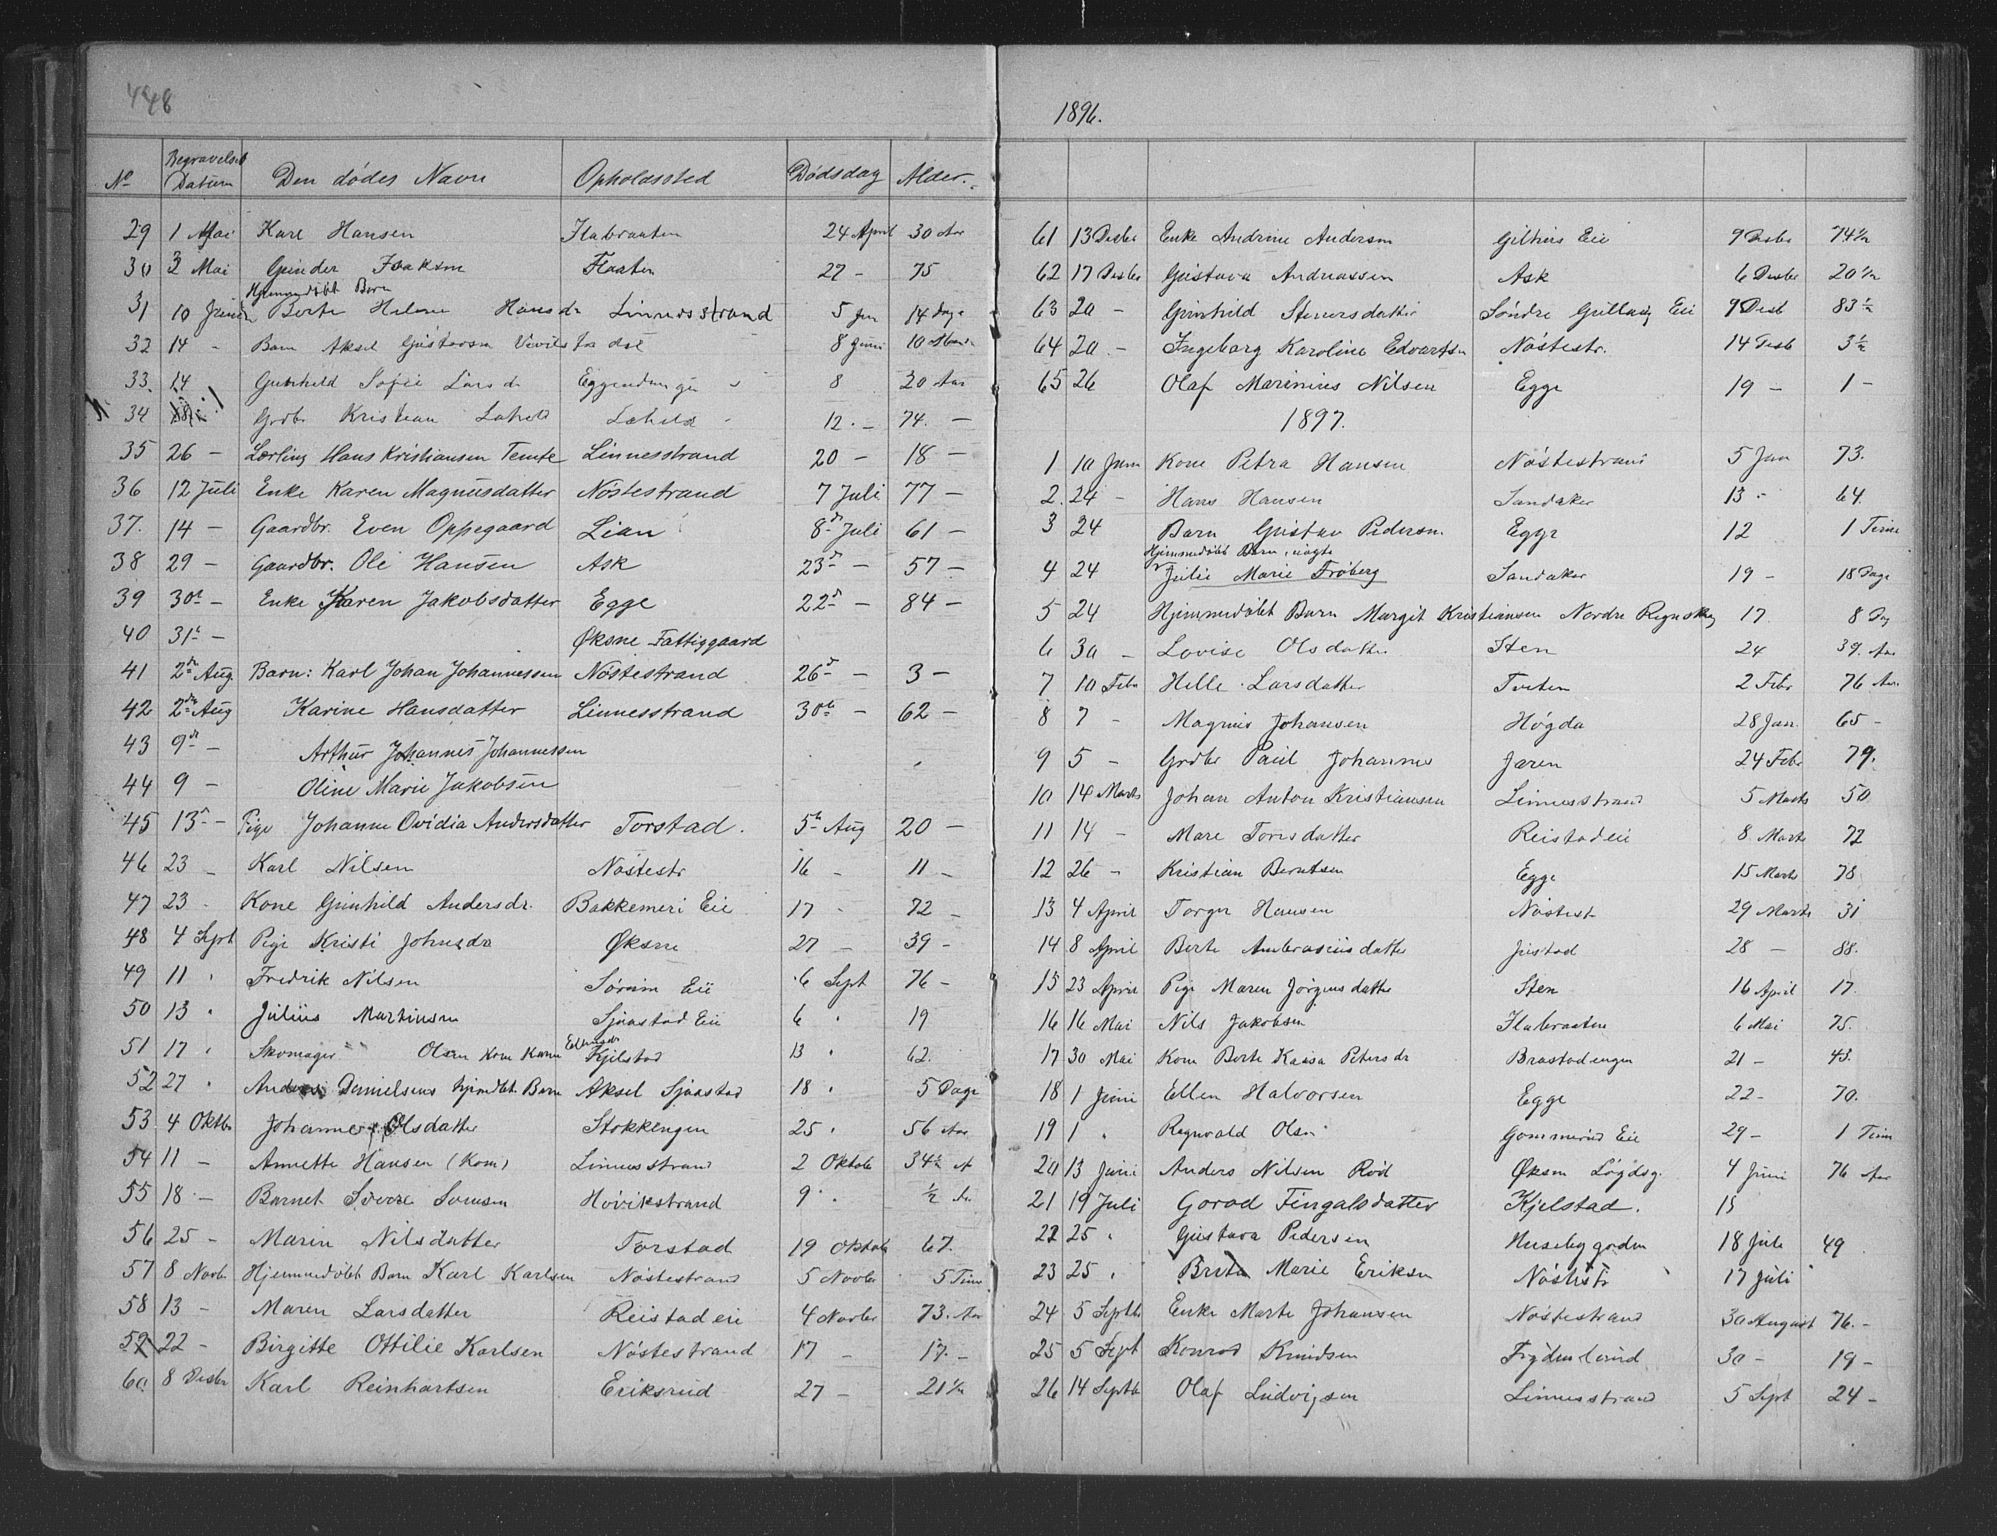 448
No Begravelses Datum Den dødes Navn Opholdssted Dødsdag Alder.
29 1 Mai Karl Hansen Flabraaten 24 April 30 Aar
30 3 Mai Gunder Isaksen Flaaten 27 - 75
Hjemmedøbt Barn
31 10 Juni Berte Helene Hansdr Linnesstrand 5 Jun 14 Dage
32 14 - Barn Aksel Gustavsen 8 Juni 10
33. 14 Gunhild Sofie Larsdr Eggendengen 8 20 Aar
34 Grdbr Kristian Lahell Lahell 12. - 74. -
35 26 - Lærling Hans Kristiansen Temte Linnesstrand 20 - 18 -
36 12 Juli Enke Karen Magnusdatter Nøstestrand 7 Juli 77 -
37. 14 - Gaardbr. Even Oppegaard Lian 8de Juli 61 -
38 29 - Gaardbr. Ole Hansen Ask 23d - 57 -
39 30te - Enke Karen Jakobsdatter Egge 22d - 84 -
40 31te - Øksne Fattiggaard
41 2den Aug. Barn: Karl Johan Johannessen Nøstestrand 26d - 3 -
42 2den Aug Karine Hansdatter Linnesstrand 30te - 62 -
43 9de - Arthur Johannes Johannessen
44 9 - Oline Marie Jakobsen
45 13de - Pige Johanne Ovidia Andersdatter Torstad. 5te Aug 20 -
46 23 - Karl Nilsen Nøstestr 16 - 11 -
47 23 - Kone Gunhild Andersdr. Bakkemeri Eie 17 - 72 -
48 4 Sept Pige Kristi Johnsdr Øksne 27 - 39 -
49 11 " Fredrik Nilsen Sørum Eie 6 Sept 76 -
50 13 " Julius Martinsen Sjaastad Eie 6 " 19
51 17 " Skomager Olsen Kone Karen Ellingsdr Kjelstad 13 " 62.
52 27 " Anders Danielsens hjmdbt Barn Aksel Sjaastad 18 " 5 Dage
53 4 Oktbr Johanne Olsdatter Stokkengen 25 " 56 Aar
54 11 - Annette Hansen (Kone) Linnesstrand 2 Oktobr 34½ A
55 18 - Barnet Sverre Hovikestrand 9 " ½ Aa.
56 25 - Maren Nilsdatter Torstad 19 Oktobr 67.
57 8 Novbr Hjemmedøbt Barn Karl Karlsen Nøstestrand 5 Novbr 5 Time
58 13 - Maren Larsdatter Reistad eie 4 Novbr 73. Aar
59 22 - Birgitte Ottilie Karlsen Nøstestrand 17 - 17. -
60 8 Desbr Karl Reinhartsen Eriksrud 27 - 21½
1896.
61 13 Desbr Enke Andrine Andersen Gilhus Eie 9 Desbr 74½
62 17 Desbr Gustava Andreassen Ask 6 Desbr 20½
63 20 - Gunhild Steversdatter Søndre Gullaug Eie 9 Desb 83½
64 20 - Ingeborg Karoline Edvartsen Nøstestr. 14 Desb 3½
65 26 Olaf Marinius Nilsen Egge 19 - 1 -
1897.
1 10 Janu Kone Petra Hansen Nøstestrand 5 Jan 73.
2. 24 - Hans Hansen Sandaker 13 - 64.
3 24 Barn Gustav Pedersen Egge 12 1 Time
Hjemmedøbt Barn, uægte
4 24 Julie Marie Frøberg Sandaker 19 - 18 Dage
5 24 Hjemmedøbt Barn Margit Kristiansen Nordre Regnskog 17 8 Dg
6 30 - Lovise Olsdatter Sten 24 39. Aar
7 10 Febr Helle Larsdatter Tveten 2 Febr 76 Aar.
8 7 - Magnus Johansen Høgda 28 Jan. 65 -
9 5 - Grdbr Paul Johannes Jaren 24 Febr 79.
10 14 Marts Johan Anton Kristiansen Linnesstrand 5 Marts 50
11 14 - Mare Torersdatter Reistad eie 8 Marts 72
12 26 - Kristian Berntsen Egge 15 Marts 78
13 4 April Torger Hansen Nøstest 29 Marts 31
14 8 April Berte Ambrosiusdatter Justad 28 - 88.
15 23 April Pige Maren Jørgensdatter Sten 16 April 17.
16 16 Mai Nils Jakobsen Flabraaten 6 Mai 75.
17 30 Mai Kone Berte Kaisa Petersdr Brastadengen 21 - 43.
18 1 Juni Ellen Halvorsen Egge 22 - 70.
19 1 " Regnvald Olsen Gommerud Eie 29 - 1 Time
20 13 Juni Anders Nilsen Rød Øksne Lægdsg. 4 Juni 76 Aar
21 19 Juli Gorod Fingalsdatter Kjelstad. 15
22 25 " Gustava Pedersen Husebygoden 18 Jule 49
23 25 " Marie Eriksen Nøstestr 17 Juli
24 5 Septbr Enke Marte Johansen Nøstestrand 30 August 76. -
25 5 Sept Konrad Knudsen Frydenlund 30 - 19 -
26 14 Septbr Olaf Ludvigsen Linnesstrand 5 Sept 24 -